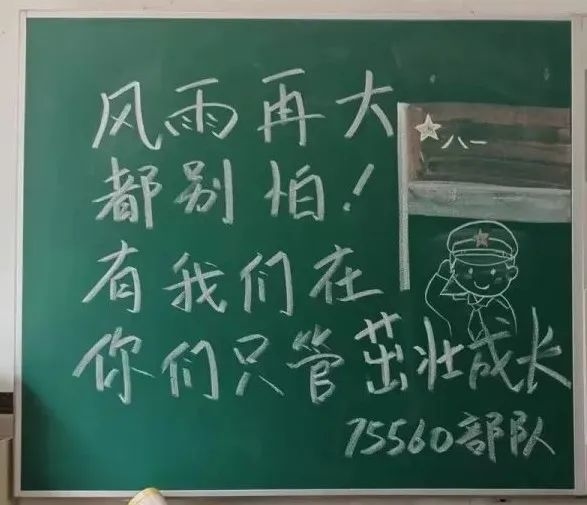 风雨再大
都别怕！
有我们在
你们只管茁壮成长
75560部队
八一